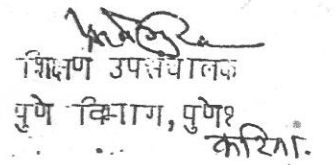 शिक्षण उपसंचालक
पुणे विभाग, पुणे१
करिता.